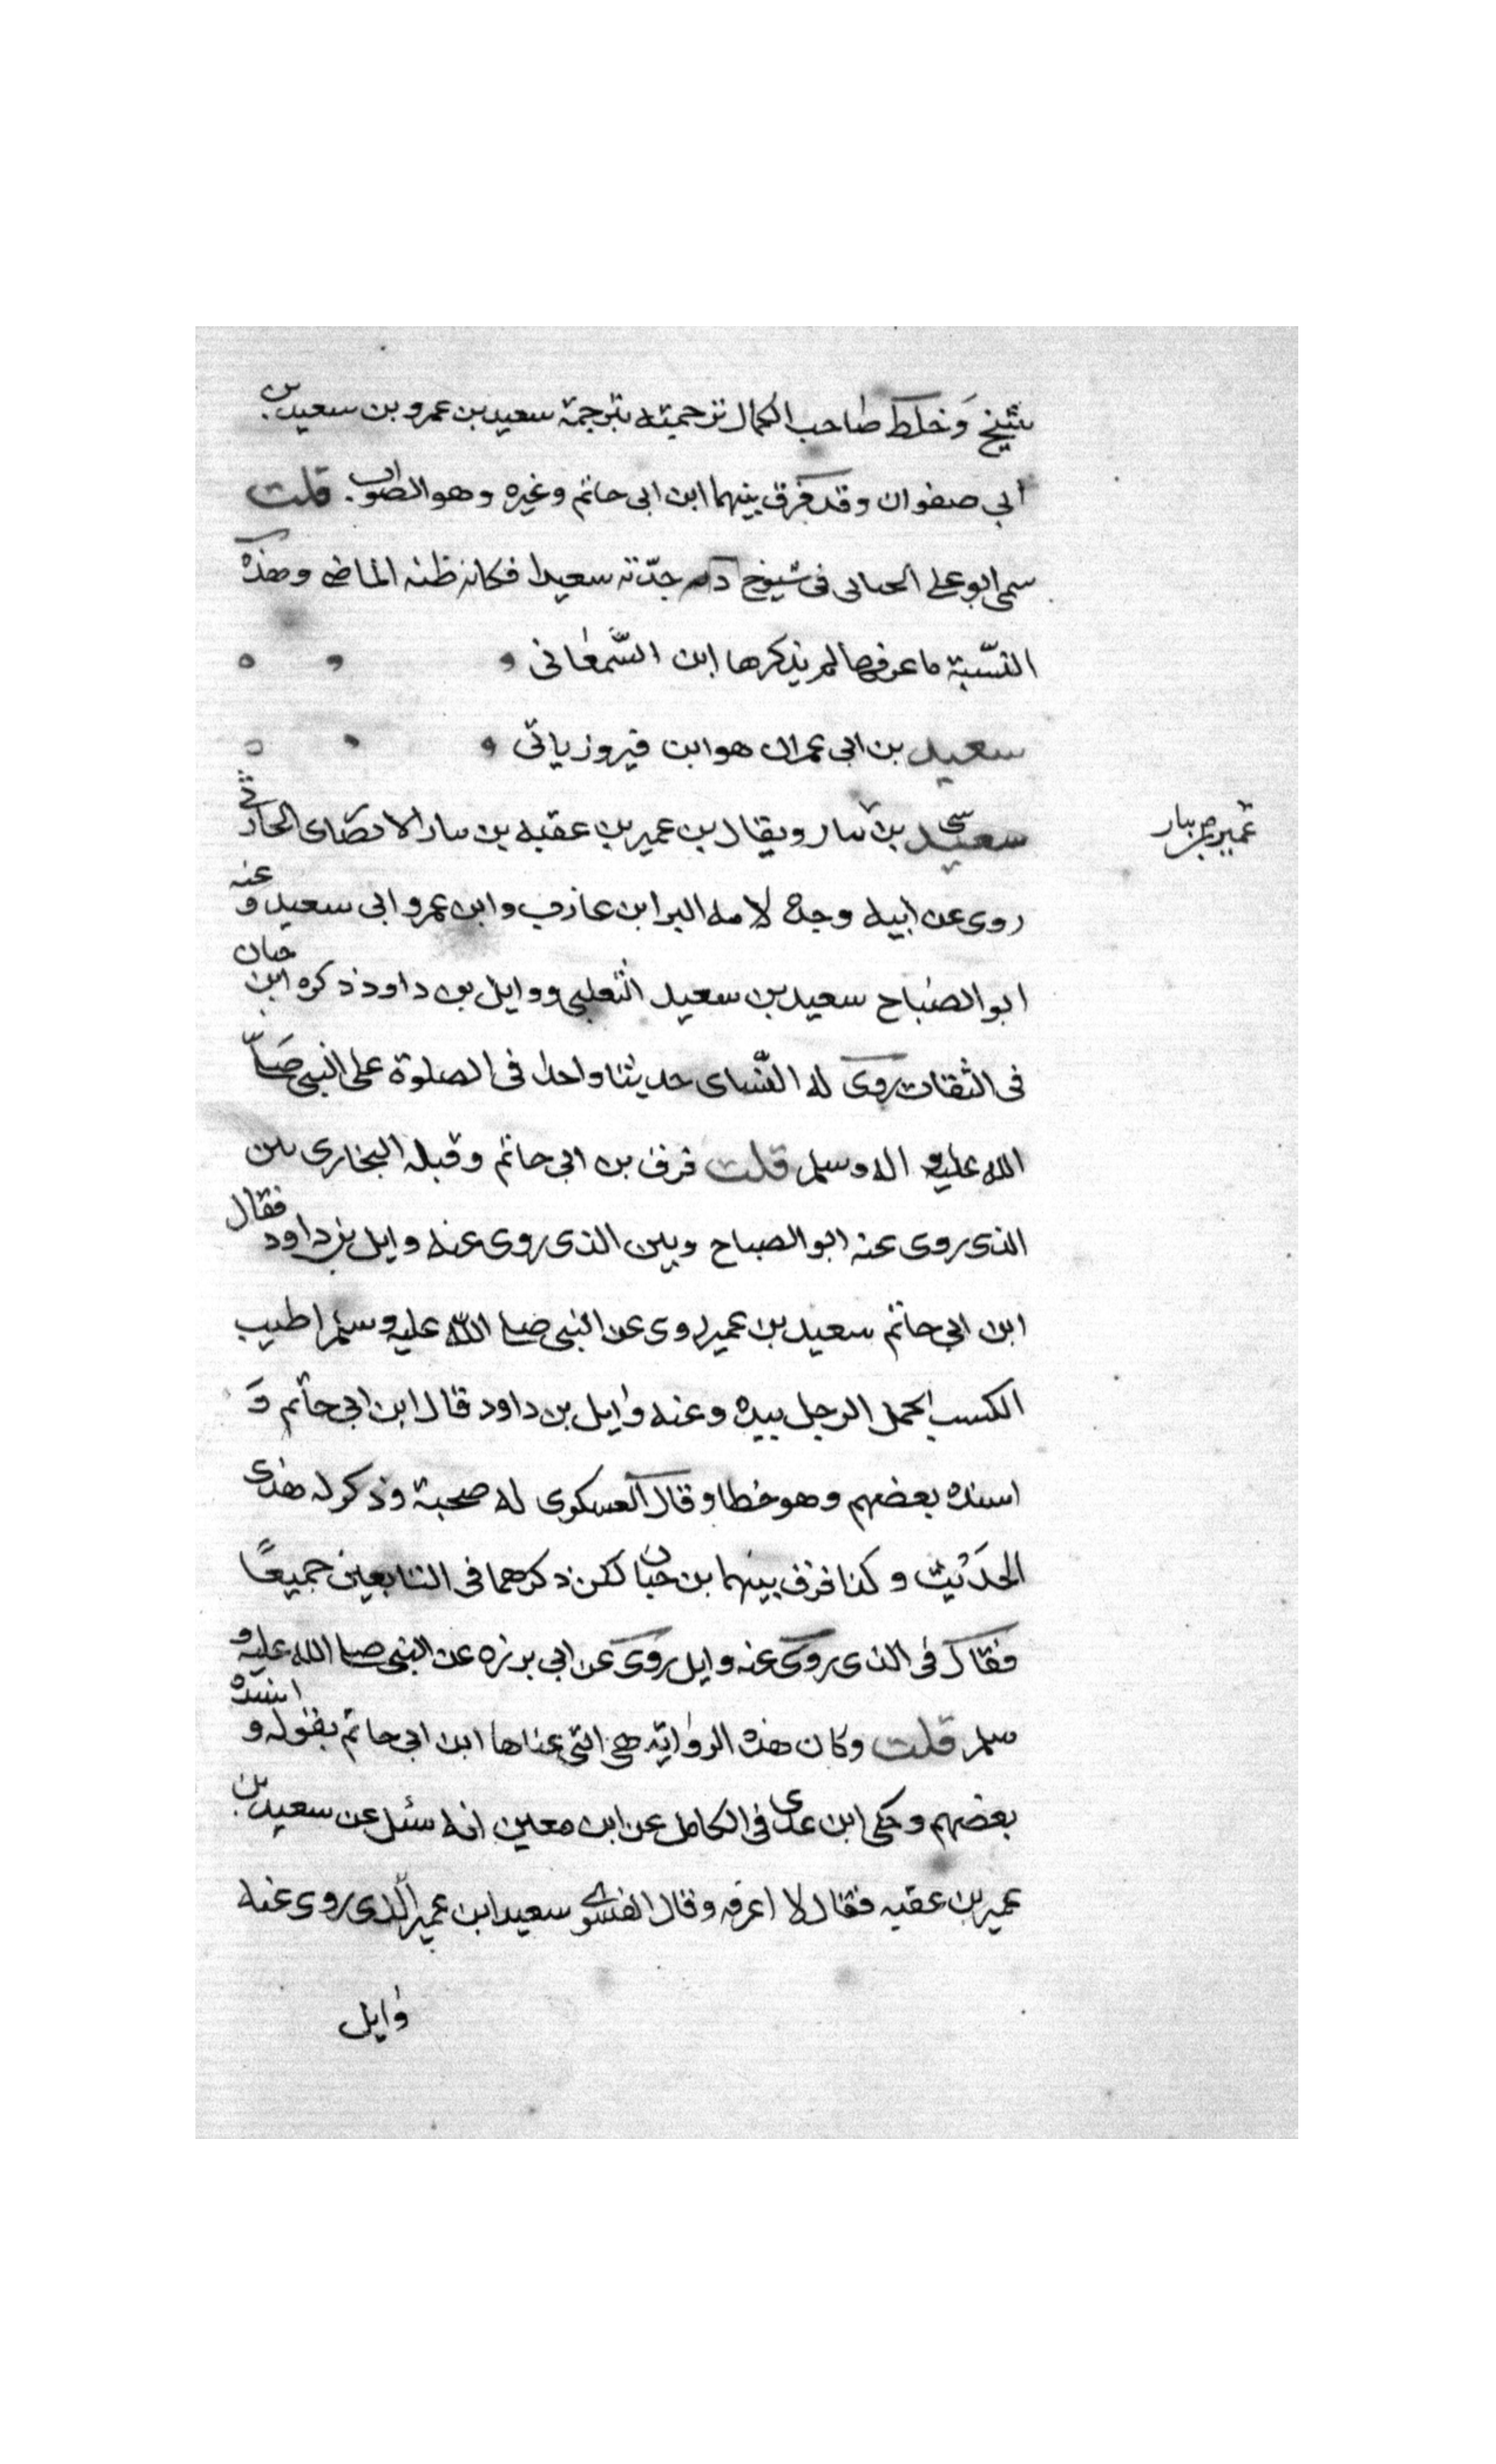 شيخ وخلط صاحب الكمال ترجمته بترجمة سعيد بن عمرو بن سعيد بن
ابي صفوان وقد فرق بينهما ابن ابى حاتم وغيره وهو الصواب. قلت
سمى ابو على الجيانى فى شيوخ جدّته سعيدا فكانه ظنه الماضى وهذه
النّسبة ما عرفها لم يذكرها ابن السّمعانى
سعيد بن ابى عمران هو ابن فيروز ياتى
سعيد بن سار ويقال بن عمير بن عقبه بن سار الانصارى الحارثى
س
عمير بن سار
روى عن ابيه وجده لامه البرا بن عازب وابن عمر وابى سعيد وعنه
ابو الصباح سعيد بن سعيد الثعلبى ووايل بن داود ذكره ابن حبان
فى الثقات روى له النّساى حديثا واحدا فى الصلوة على النبى صلّى
الله عليه واله وسلم قلت فرق بن ابى حاتم وقبله البخارى بين
الذى روى عنه ابو الصباح وبين الذى روى عنه وايل بن داود فقال
ابن ابى حاتم سعيد بن عمير روى عن النبى صلى الله عليه وسلم اطيب
الكسب عمل الرجل بيده وعنه وايل بن داود قال ابن ابى حاتم و
اسنده بعضهم وهو خطا وقال العسكرى له صحبة وذكر له هذى
الحديث وكذا فرق بينهما بن حبان لكن ذكرهما فى التابعين جميعًا
فقال فى الذى روى عنه وايل روى عن ابى برزه عن النبى صلى الله عليه و
سلم قلت وكان هذه الرواية هى التى عناها ابن ابى حاتم بقوله واسنده
بعضهم وحكى ابن عدى فى الكامل عن ابن معين انه سئل عن سعيد بن
عمير بن عقبه فقال لا اعرفه وقال الفسوى سعيد ابن عمير الّذى روى عنه
وايل